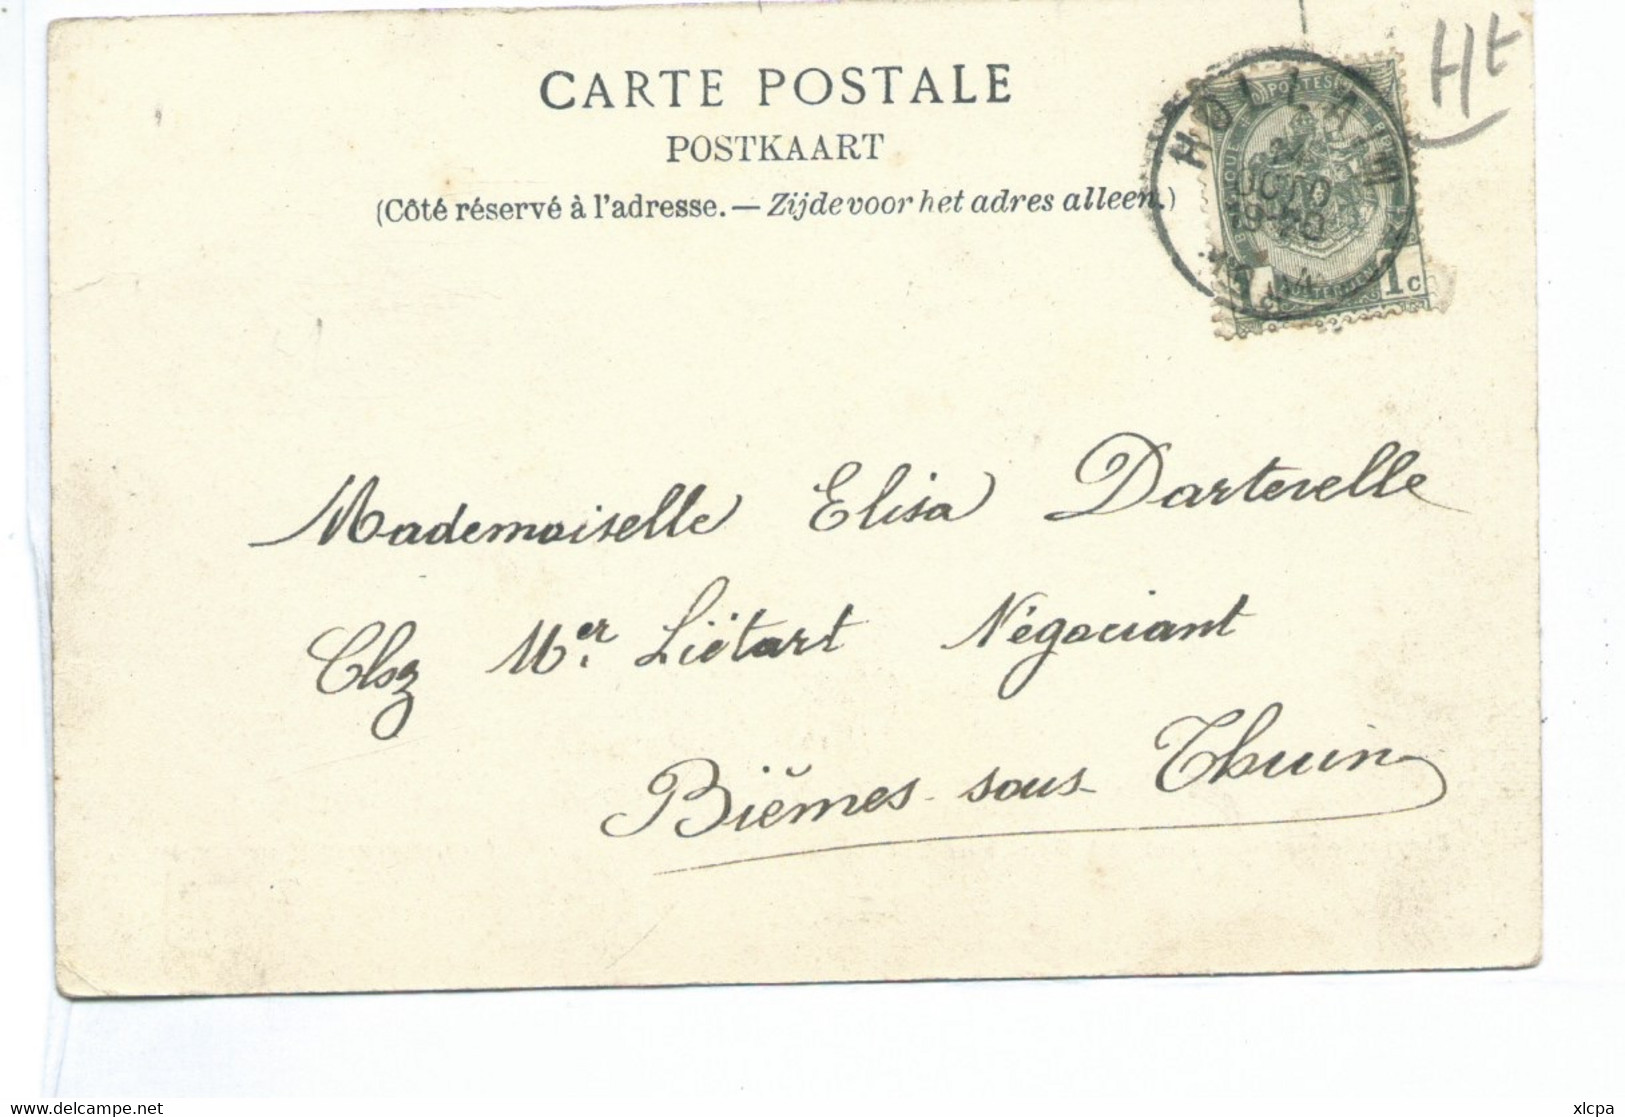 CARTE POSTALE
POSTKAART
(Côté réservé à l'adresse. — Zijde voor het adres alleen.)
Ht
HOLLAIN
OCTO
19-20
POSTES
1c
Mademoiselle Elisa Dartevelle
Chez Mer. Liétart Négociant
Biěmes-sous-Thuin
www.delcampe.net
xlcpa